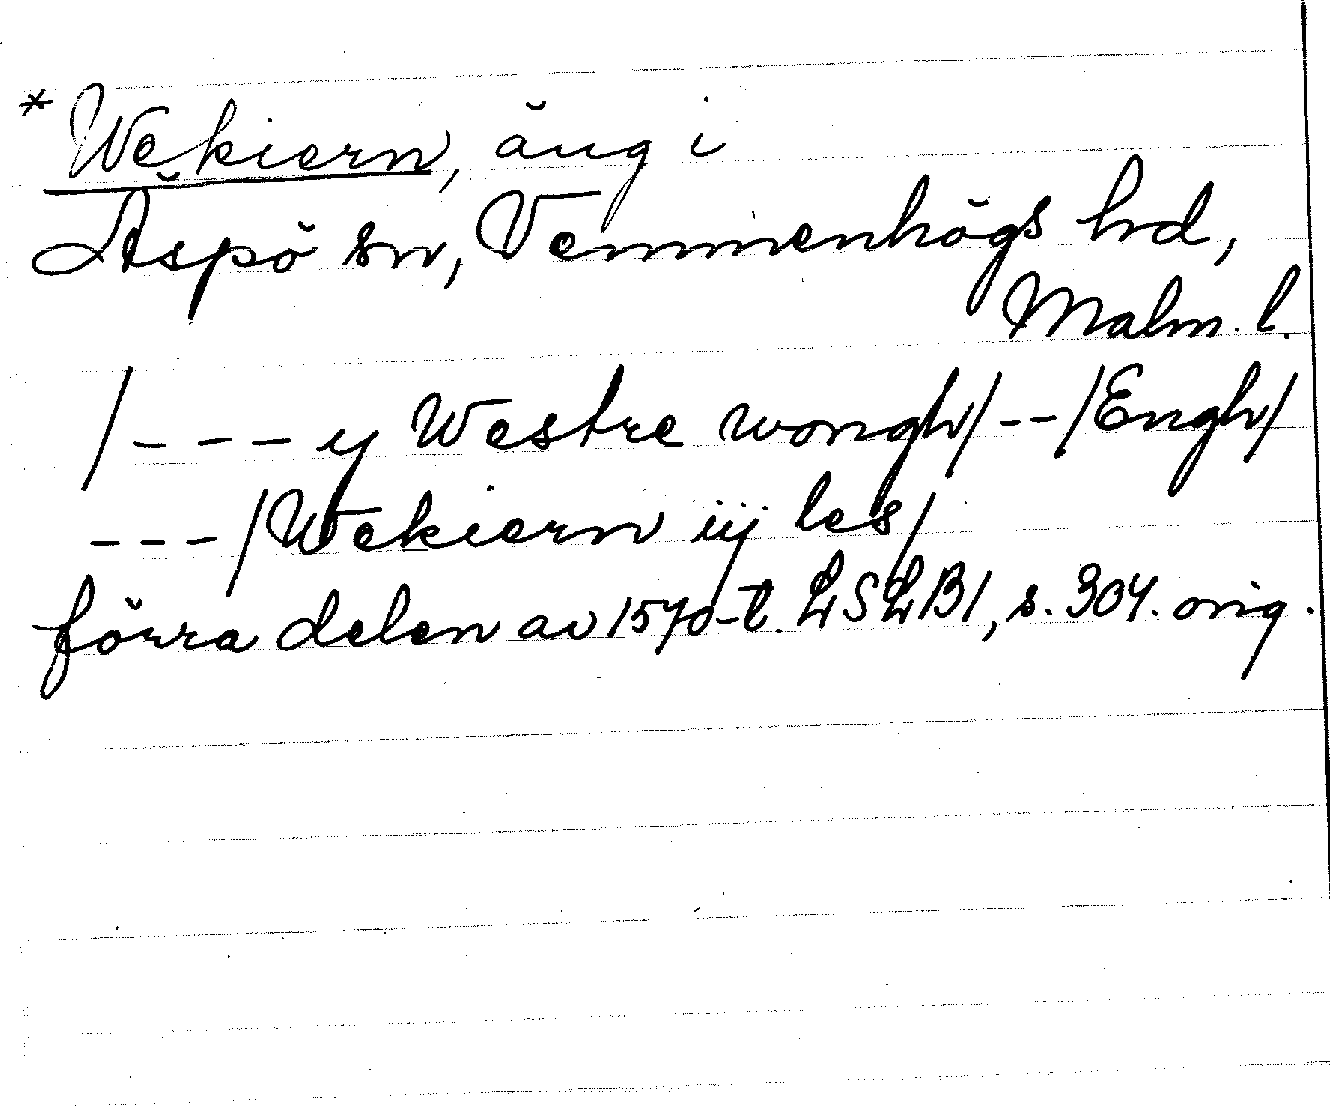 * Wekiern, äng i
Äspö sn, Vemmenhögs hd,
Malm. l.
/--- y Westre wongh/--/Engh/
---/Wekiern iij les/
förra delen av 1570-t. LSLB1, s. 304. orig.